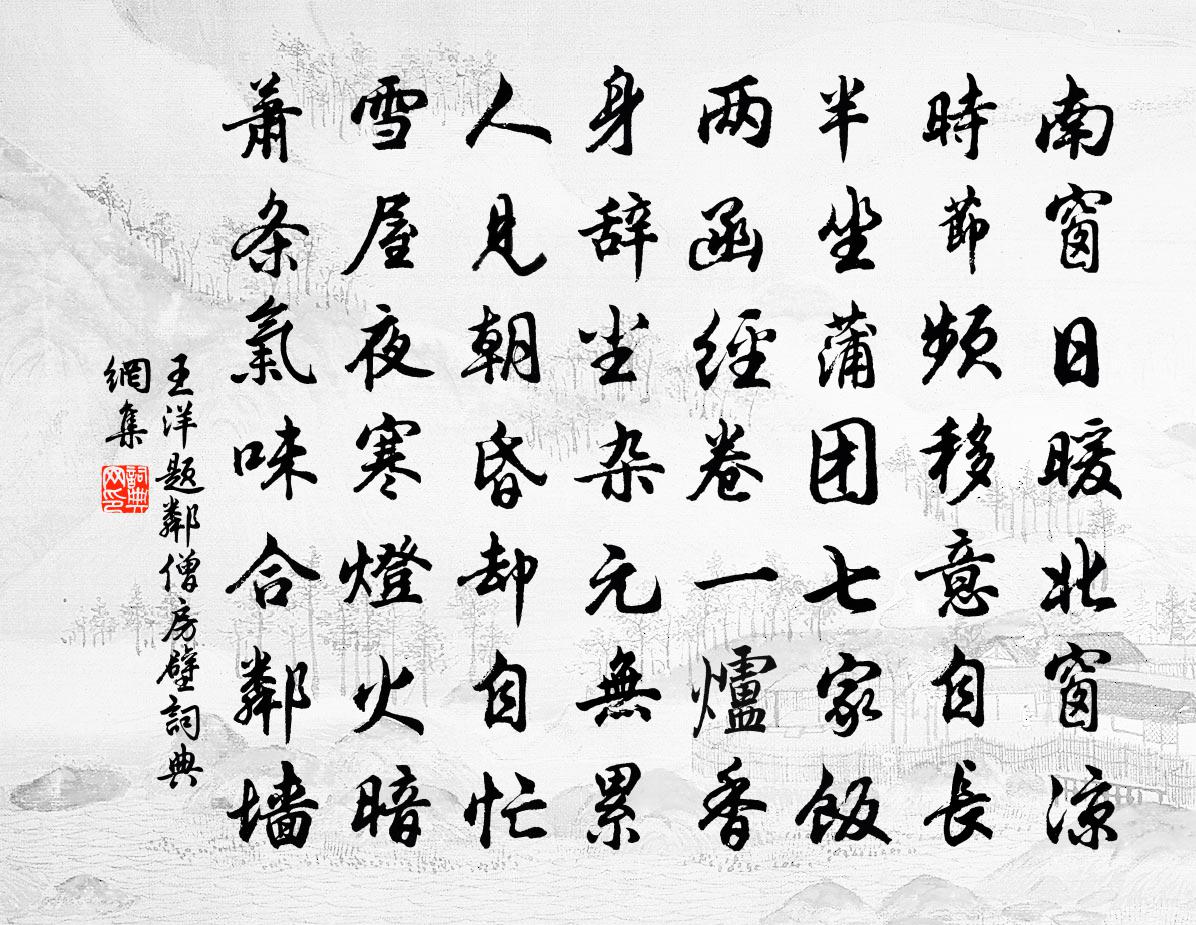 南窗日暖北窗凉
時節頻移意自長
半坐蒲团七家飯
两函經卷一爐香
身辞尘杂元無累
人見朝昏却自忙
雪屋夜寒燈火暗
萧条氣味合鄰墙
王洋題鄰僧房壁詞典
網集
詞典